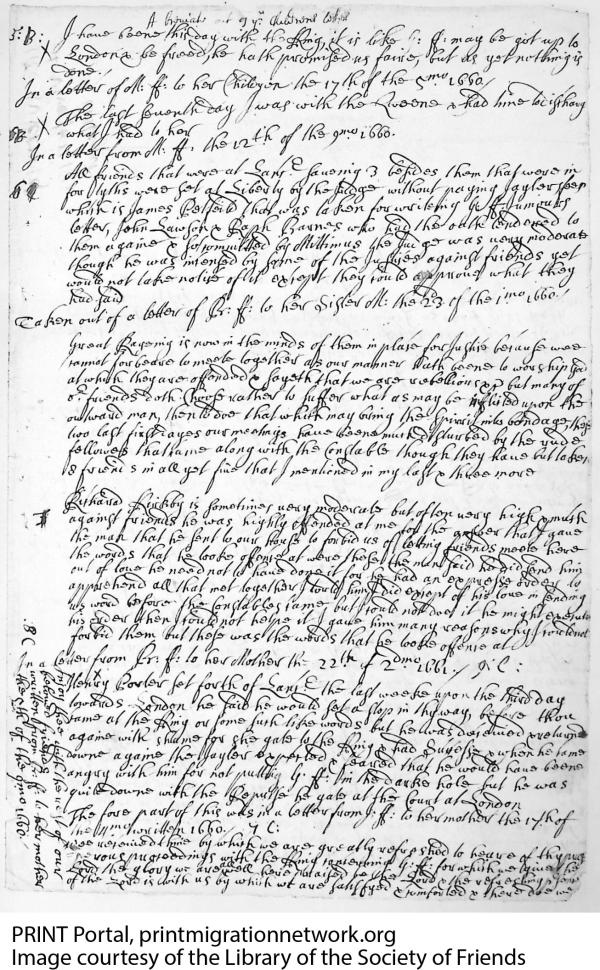 A breviate out of ye Childrens letters
5: B: I have beene this day with the King, it is like G: ff: may be got up to
London & be freed, he hath promised us faire, but as yet nothing is
done.
In a letter of M: ff: to her Children the 17th of the 5mo 1660.
X The last seventh day I was with the Queene & had time to
what I had to her
In a letter from M: ff: the 12th of the 9mo 1660.
All friends that were at Lanc: saveing 3 besides them that were in
for Tyths were set at Liberty by the Judge without paying Jaylers fees
which is James that was taken for writeing
letter, John Lawson & Raph Barnes who had the oath tendered to
them againe & so committed by Mittimus the Judge was very moderate
though he was incensed by some of the Justices against friends yet
would not take notise of it except they could approve what they
had said
Taken out of a letter of Br: ff: to her Sister M: the 23 of the 1mo 1660.
Great Rageing is now in the minds of them in place for Justis because wee
cannot forbeare to meete together as our manner hath beene to worship god
at which they are offended & sayeth that we are rebellious but many of
friends doth Choose rather to suffer what as may be inflicted upon the
outward man, then to doe that which may bring the spirit into bondage, these
two last first dayes our meetings have beene much disturbed by the rude
fellowes that came along with the Constable though they have but taken
8 friends in all yet five that I mentioned in my last & three more
Richard Kirkby is sometimes very moderate but often very high & much
against friends he was highly offended at me for the answer that I gave
the man that he sent to our house to forbid us of letting friends meete here
the words that he tooke offense at were these the man said he did send him
out of love he need not to have done it for he had an expresse order to
apprehend all that met together I tould him I did except of his love in sending
us word before the Constables came but I could not doe it he might execute
his order then I could not helpe it I gave him many reasons why I could not
forbid them but these was the words that he tooke offense at
In a letter from Br: ff: to her Mother the 22th of 2dmo 1661.
Henry Porter set forth of Lanc: the last weeke upon the third day
towards London he said he would set a stop in thy way, before thou
came at the King or some such like words but he was deceived & returned
againe with shame for she gate to the King & had Successe & when he came
downe againe the Jayler expected & feared that he would have beene
angry with him for not putting G: ff: In the darke hole but he was
quiet downe with the Repulse he gate at the Court at London
The fore part of this was in a letter from ff: to her mother the 17th of
the 4mo written 1660.
wee received thine by which we are greatly refreshed to heare of thy
proceedings with the King concerning G: ff: for which we give the
Lord the glory we are well here praised be the Lord & the refreshing
of the Lord is with us by which we are satisfyed & comforted & there doe we
her mother
of the 9mo 1660.
PRINT Portal, printmigrationnetwork.org
Image courtesy of the Library of the Society of Friends